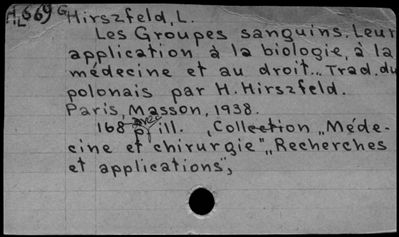 A,669 G Hirszfeld, L.
Les Groupes sanguins. Leur
application à la biologie, à la
médecine et au droit... Trad. du
polonais par H. Hirszfeld.
Paris, Masson, 1938.
168 p. ill. , Collection „Méde-
cine et chirurgie", „Recherches
et applications",